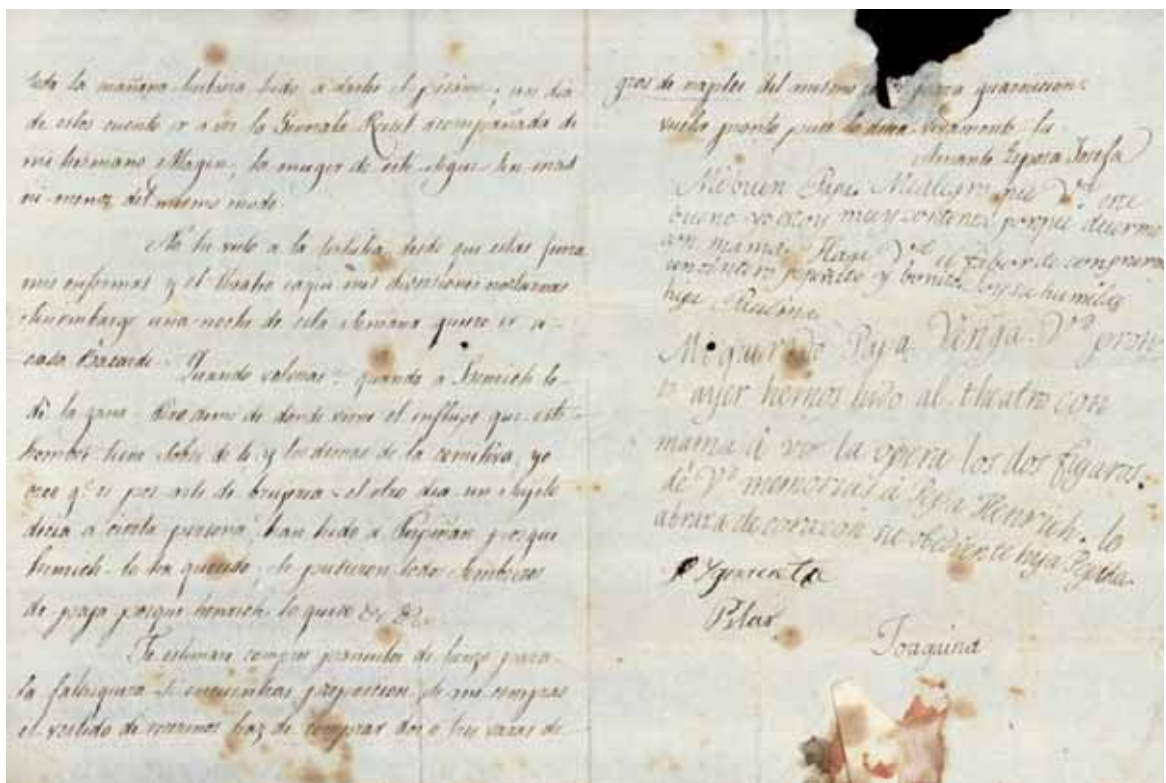 toda la mañana hubiera hido a darle el pésame, un dia
de estos cuento ir a ver la Generala acompañada de
mi hermano Magin, la muger de este sigue sin mas
ni menos del mismo modo.
No he vuelto a la tertulia desde que estas
enfermas y el theatro mis diversiones nocturnas
sinembargo una noche de esta semana quiero ir a
casa Bacardi. Quando quando a Henrich le
dé la gana. Pero dime de donde viene el influjo que este
hombre tiene sobre de ti, y los demas de la comitiva, yo
creo q.e es por arte de brugeria, el otro dia un sugeto
decia a cierta persona, han hido a Perpiñan porque
Henrich lo ha querido, se pusieron todos sombreros
de paja porque henrich lo quiere &c &c.
Te estimaré compres pañuelos de lienzo para
la faltriquera si encuentras proporcion, si me compras
el vestido de merinos haz de comprar dos o tres varas de
gros de naples del mismo para guarnicion
vuelve pronto pues lo desea vivamente tu
Amante Esposa Josefa
Mi buen Papa Me alegro que V.d esté
bueno yo estoy muy contenta porque duermo
con mama. Haga V.d el fabor de comprarme
un tintero pequeñito y bonito, soy su humilde
hija Paulina
Mi querido Papa. Venga V.d pron
to ayer hemos hido al theatro con
mama á ver la opera los dos figaros.
dé V.d memorias á Pepa Henrich. lo
abraza de corazon su obediente hija Pepita.
Ygnacita
Pilar
Joaquina